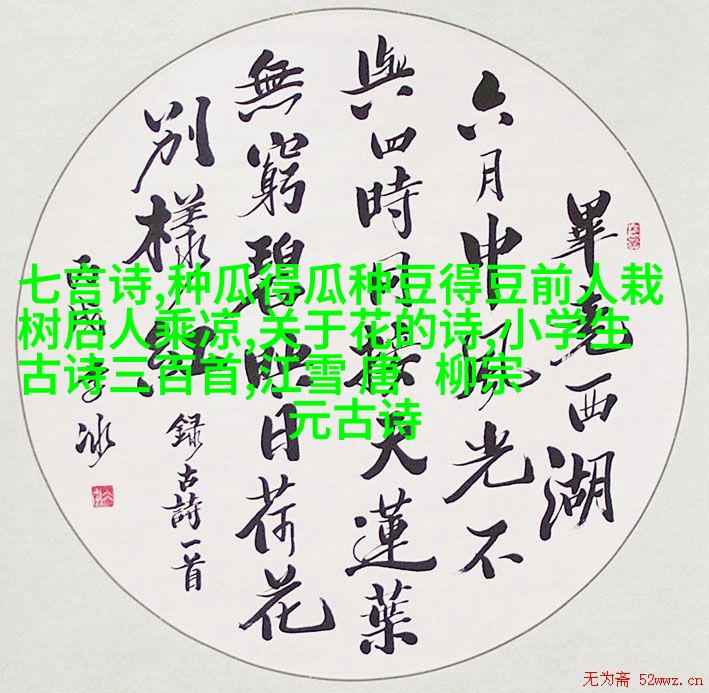 畢竟西湖
六月中風光不
與四時同接天蓮葉
無窮碧映日荷花
別樣紅
錄古詩一首
冰
七言诗,种瓜得瓜种豆得豆前人栽
树后人乘凉,关于花的诗,小学生
古诗三百首,江雪 唐 柳宗
元古诗
无为斋 52wwz.cn